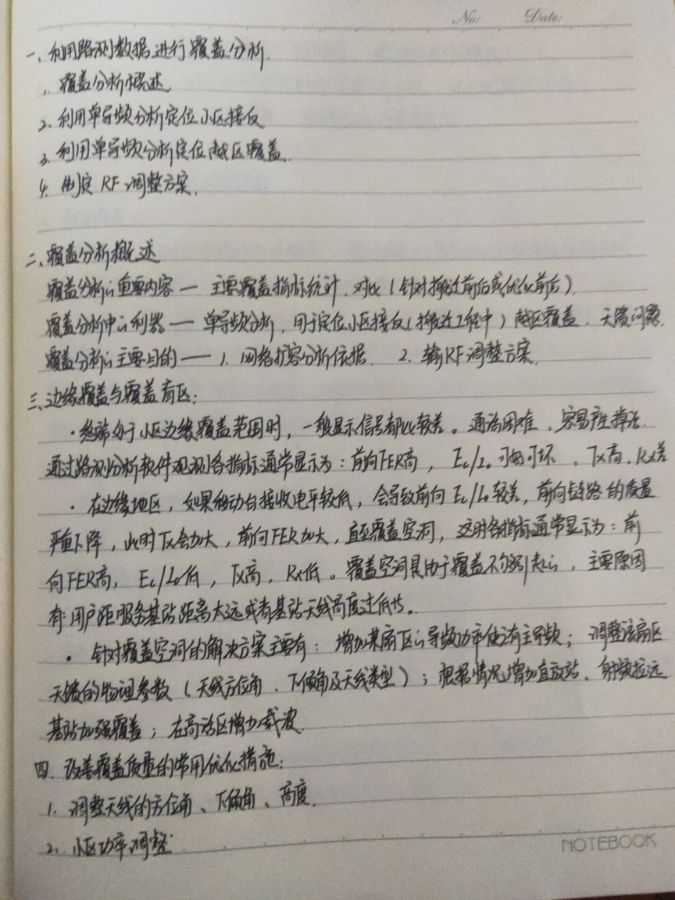 No: Date:
一、利用路测数据进行覆盖分析.
1. 覆盖分析概述
2. 利用单导频分析定位小区接反
3. 利用单导频分析定位越区覆盖.
4. 制定RF调整方案.
二、覆盖分析概述
覆盖分析的重要内容 — 主要覆盖指标统计、对比（针对搬迁前后或优化前后）
覆盖分析中的利器 — 单导频分析，用于定位小区接反（搬迁工程中）越区覆盖，天馈问题.
覆盖分析的主要目的 — 1. 网络扩容分析依据. 2. 输RF调整方案.
三、边缘覆盖与覆盖盲区:
· 终端处于小区边缘覆盖范围时，一般显示信号都比较差。通话困难、容易产生掉话.
通过路测分析软件观测各指标通常显示为：前向FER高，Ec/Io可好可坏、Tx高、Rx差
· 在边缘地区，如果移动台接收电平较低，会导致前向Ec/Io较差，前向链路的质量
严重下降，此时Tx会加大，前向FER加大，直至覆盖空洞，这时各指标通常显示为：前
向FER高，Ec/Io低，Tx高，Rx低。覆盖空洞是由于覆盖不够引起的，主要原因
有:用户距服务基站距离太远或者基站天线高度过低等。
· 针对覆盖空洞的解决方案主要有：增加某扇区的导频功率使之有主导频；调整该扇区
天馈的物理参数（天线方位角、下倾角及天线类型）；根据情况增加直放站、射频拉远
基站加强覆盖；在高话区增加载波.
四. 改善覆盖质量的常用优化措施:
1. 调整天线的方位角、下倾角、高度.
2. 小区功率调整
NOTEBOOK